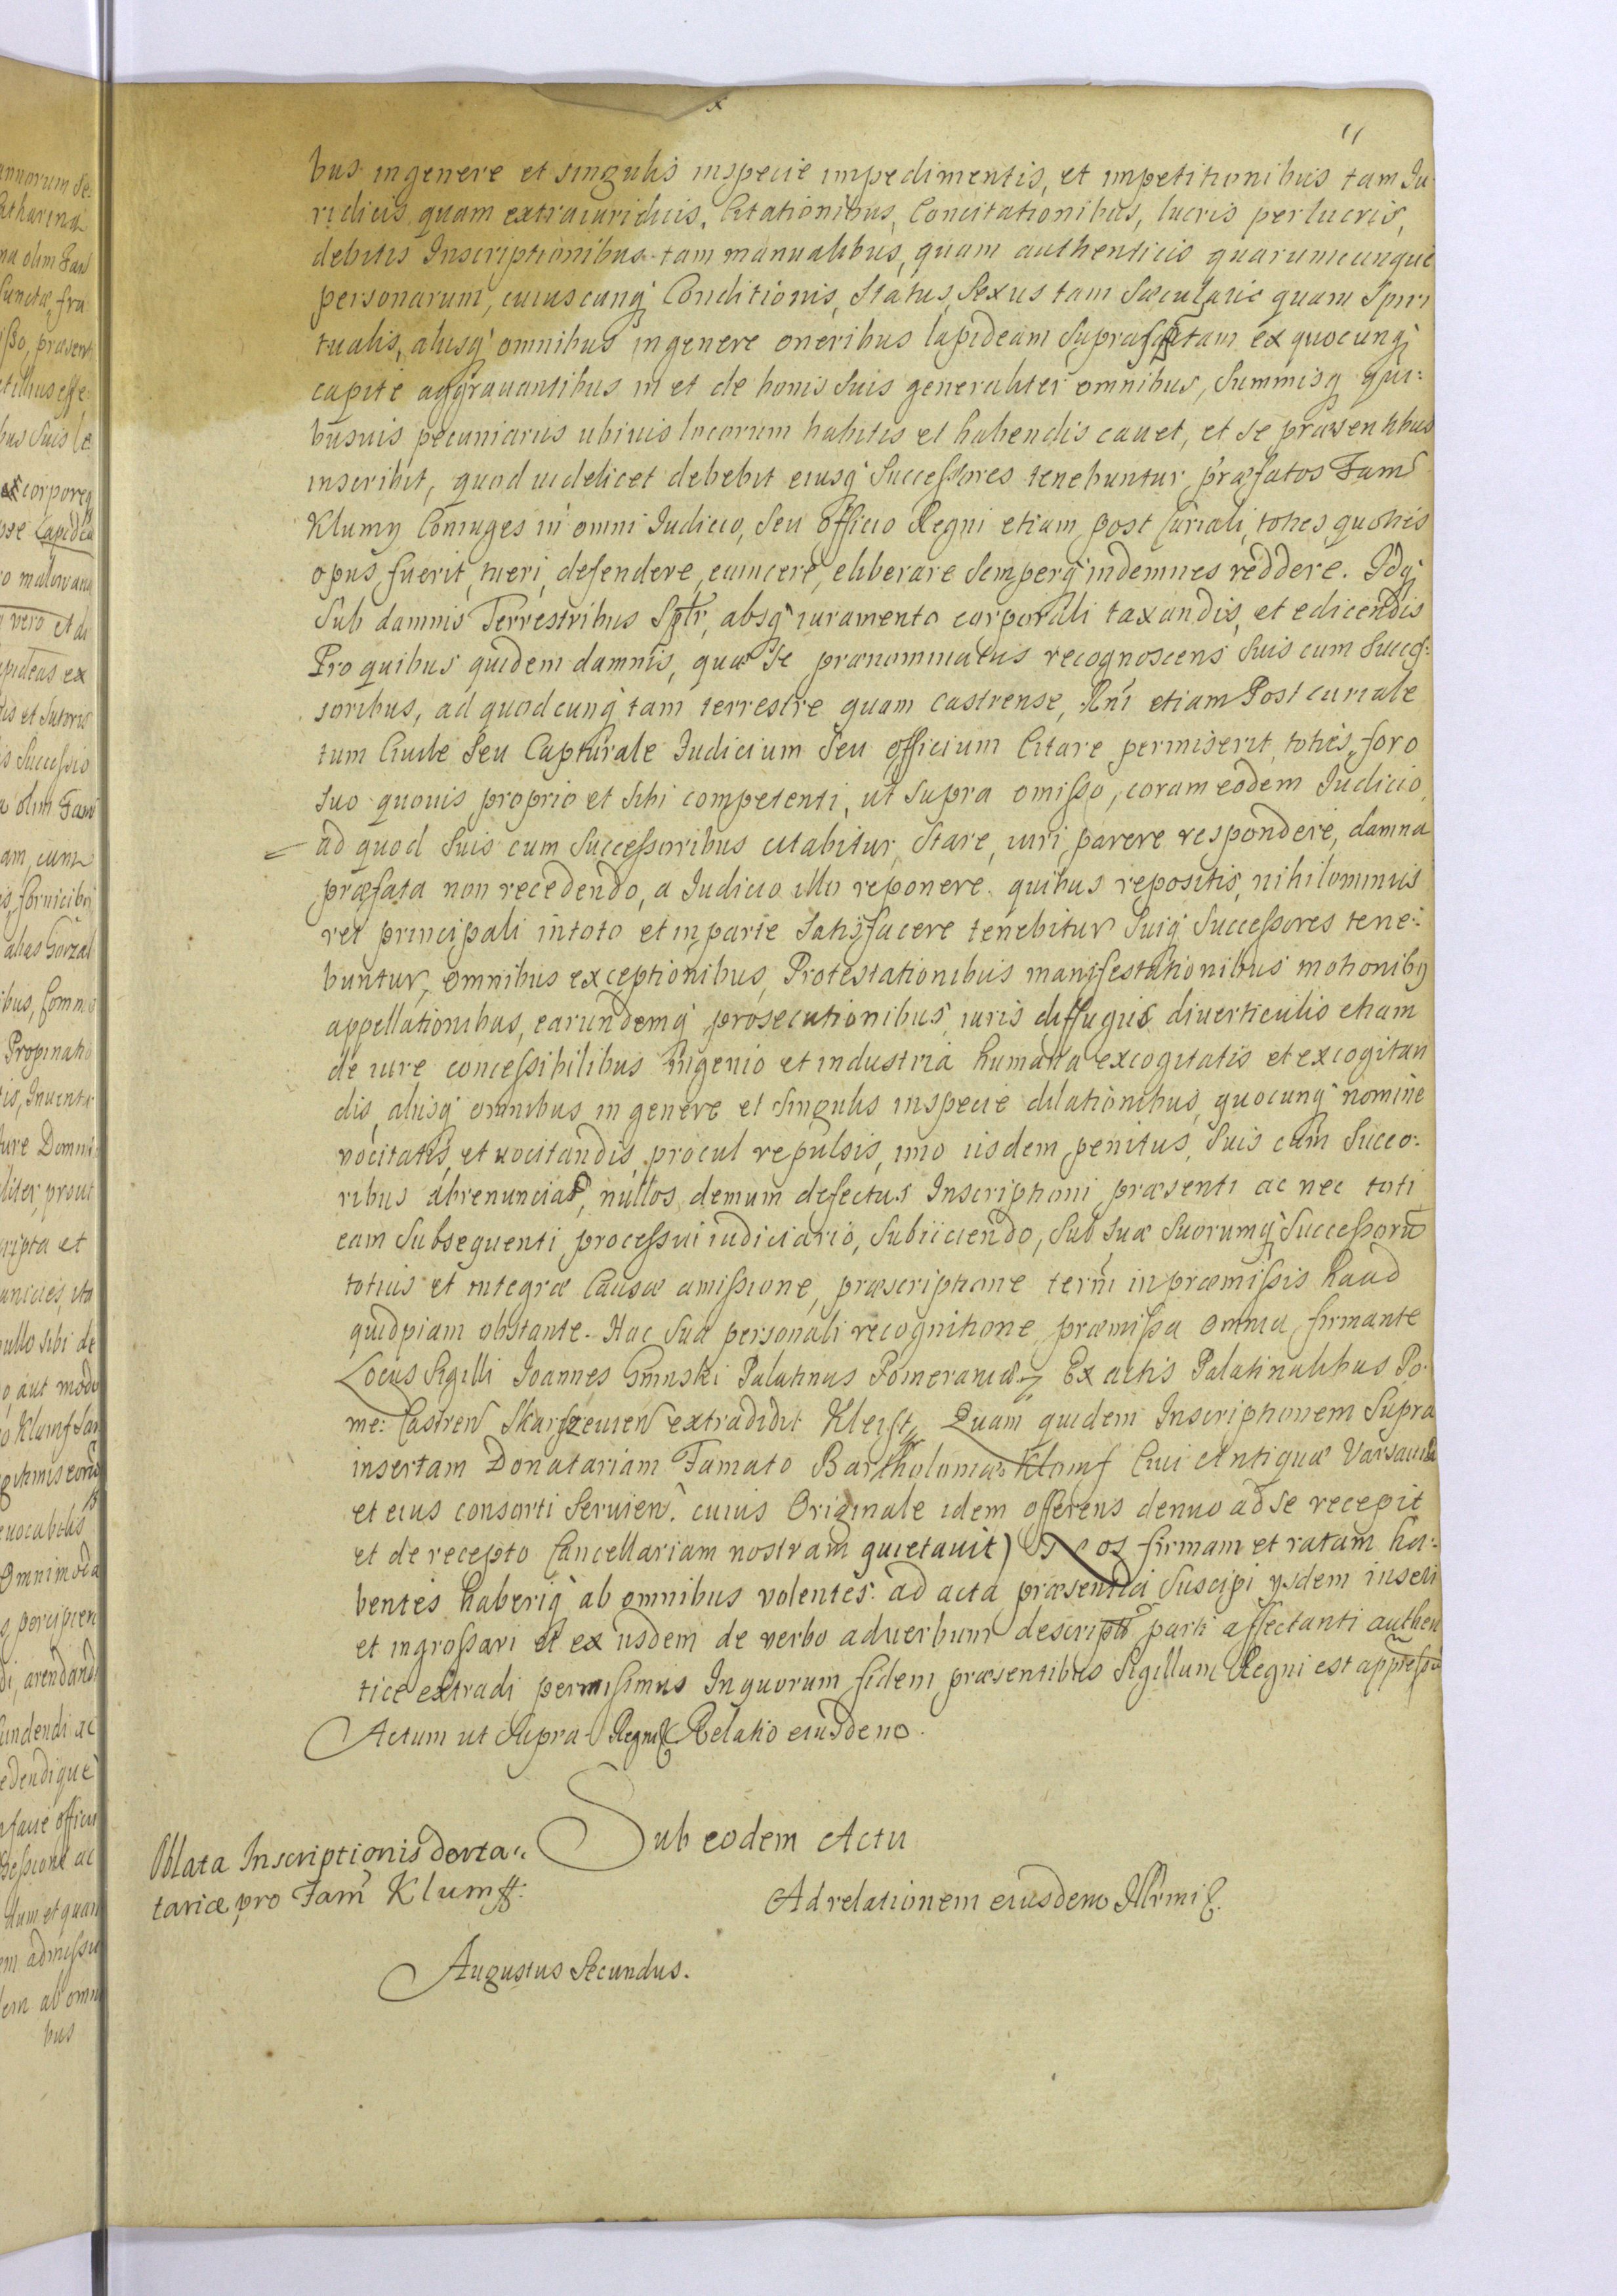 bus in genere et singulis inspecie impedimentis, et impetitionibus tam Ju
ridicis quam extraiuridicis, Citationibus, Concitationibus, lucris perlucris,
debitis Inscriptionibus tam manualibus, quam authenticis quarumcunque
personarum, cuiuscunq Conditionis, Status, Sexus tam Sæcularis quam Spiri
tualis, alijsq omnibus in genere oneribus lapideam Suprascptam ex quocunq
capite aggrauantibus in et de bonis Suis generaliter omnibus, Summisq qui:
busuis pecuniarijs ubiuis locorum habitis et habendis cauet, et se præsentibus
inscribit, quod uidelicet debebit eiusq Successores tenebuntur præfatos Fam
Klumy Coniuges in omni Iudicio, Seu Officio Regni etiam post Curiali, toties, quoties
opus fuerit, tueri, defendere, euincere, eliberare Semperq indemnes reddere. Idq
Sub damnis Terrestribus Spltr, absq iuramento corporali taxandis, et edicendis
Pro quibus quidem damnis, quæ Se prænominatus recognoscens Suis cum Succes:
soribus, ad quodcunq tam terrestre quam castrense, Rni etiam Post curiale
tum Ciuile Seu Capturale Iudicium Seu Officium Citare permiserit, toties, foro
Suo quouis proprio et Sibi competenti, ut Supra omisso, coram eodem Iudicio
ad quod Suis cum Successoribus citabitur, Stare, iuri, parere respondere, damna
præfata non recedendo, a Iudicio illo reponere quibus repositis, nihilominus
rei principali in toto et in parte Satisfacere tenebitur Suiq Successores tene:
buntur, omnibus exceptionibus, Protestationibus manifestationibus motionibq
appellationibus, earundemq prosecutionibus, iuris diffugijs diuerticulis etiam
de iure concessibilibus Ingenio et industria humana excogitatis et excogitan
dis, alijsq omnibus in genere et Singulis inspecie dilationibus, quocunq nomine
vocitatis, et uocitandis, procul repulsis, imo iisdem penitus, Suis cum Succo:
ribus abrenunciat, nullos demum defectus Inscriptioni præsenti ac nec toti
eam Subsequenti processui iudiciario, Subiiciendo, Sub Suæ Suorumq Successorū
totius et integræ Causæ amissione, præscriptione termi in præmissis haud
quidpiam obstante. Hac Sua personali recognitione præmissa omnia firmante
Locus Sigilli Joannes Gninski Palatinus Pomeraniæ Ex actis Palatinalibus Po.
me: Castren Skarszeuien extradidit Kleist Quam quidem Inscriptionem Supra
insertam Donatariam Famato Bartholomæo Klomf Ciui Antiquæ Varsauiæ
et eius consorti Seruien. cuius Originale idem offerens denuo ad se recepit
et de recepto Cancellariam nostram quietauit) Nos firmam et ratam ha:
bentes haberiq ab omnibus volentes. ad acta præsentia Suscipi ijsdem inseri
et ingrossari et ex iisdem de verbo ad verbum descripta parti affectanti authen
tice extradi permisimus In quorum fidem præsentibus Sigillum Regni est appressū
Actum ut Supra Regni Relatio eiusdem
Sub eodem Actu
Oblata Inscriptionis dona:
tariæ pro Fam Klumff:
Ad relationem eiusdem Illrmi
Augustus Secundus.